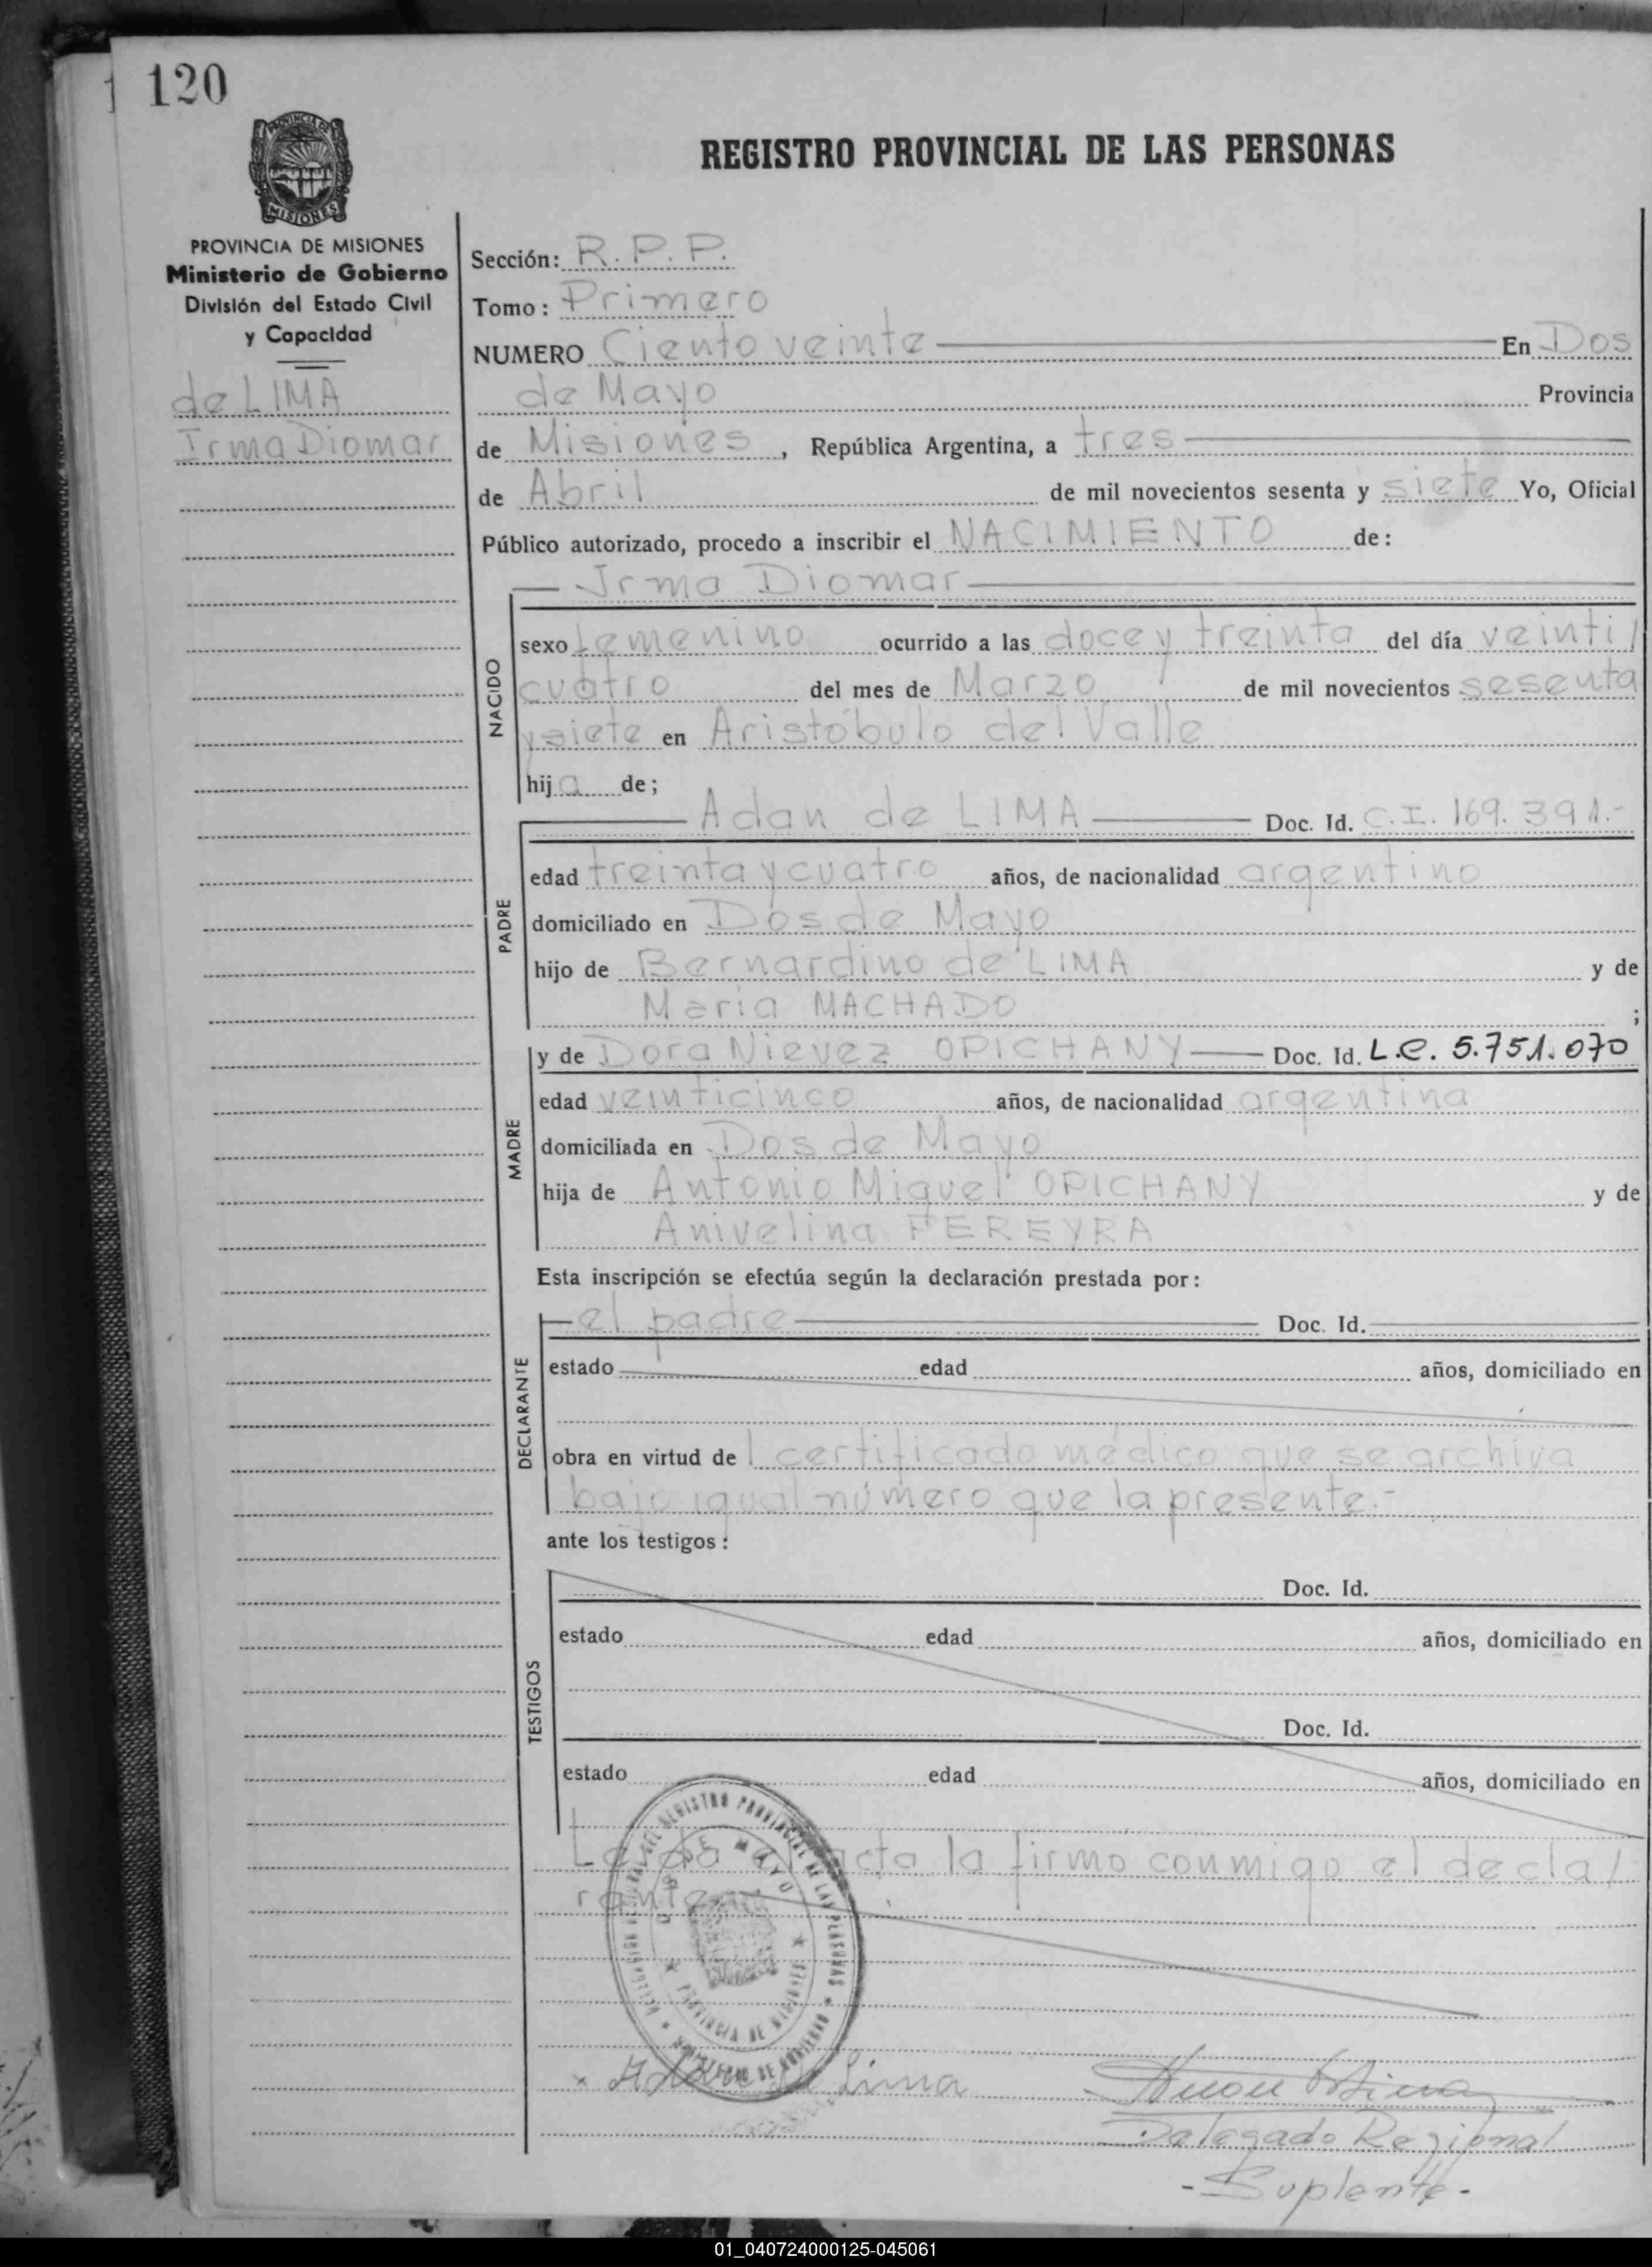 120
PROVINCIA DE MISIONES
REGISTRO PROVINCIAL DE LAS PERSONAS
PROVINCIA DE MISIONES
Ministerio de Gobierno
División del Estado Civil
y Capacidad
de LIMA
Irma Diomar
Sección: R.P.P.
Tomo: Primero
NUMERO Ciento veinte En Dos
de Mayo Provincia
de Misiones, República Argentina, a tres
de Abril de mil novecientos sesenta y siete Yo, Oficial
Público autorizado, procedo a inscribir el NACIMIENTO de:
Irma Diomar
NACIDO
sexo femenino ocurrido a las doce y treinta del día veinti/
cuatro del mes de Marzo de mil novecientos sesenta
y siete en Aristóbulo del Valle
hija de;
PADRE
Adan de LIMA Doc. Id. C.I. 169.391.-
edad treinta y cuatro años, de nacionalidad argentino
domiciliado en Dos de Mayo
hijo de Bernardino de LIMA y de
María MACHADO ;
MADRE
y de Dora Nievez OPICHANY Doc. Id. L.C. 5.751.070
edad veinticinco años, de nacionalidad argentina
domiciliada en Dos de Mayo
hija de Antonio Miguel OPICHANY y de
Anivelina PEREYRA
Esta inscripción se efectúa según la declaración prestada por:
DECLARANTE
el padre Doc. Id.
estado edad años, domiciliado en
obra en virtud del certificado médico que se archiva
bajo igual número que la presente.-
ante los testigos:
TESTIGOS
Doc. Id.
estado edad años, domiciliado en
Doc. Id.
estado edad años, domiciliado en
Leída el acta la firmo conmigo el decla/
rante
DELEGACION DEL REGISTRO PROVINCIAL DE LAS PERSONAS * MINISTERIO DE GOBIERNO *
DOS DE MAYO * PROVINCIA DE MISIONES *
x Adan de Lima
Delegado Regional
- Suplente -
01_040724000125-045061